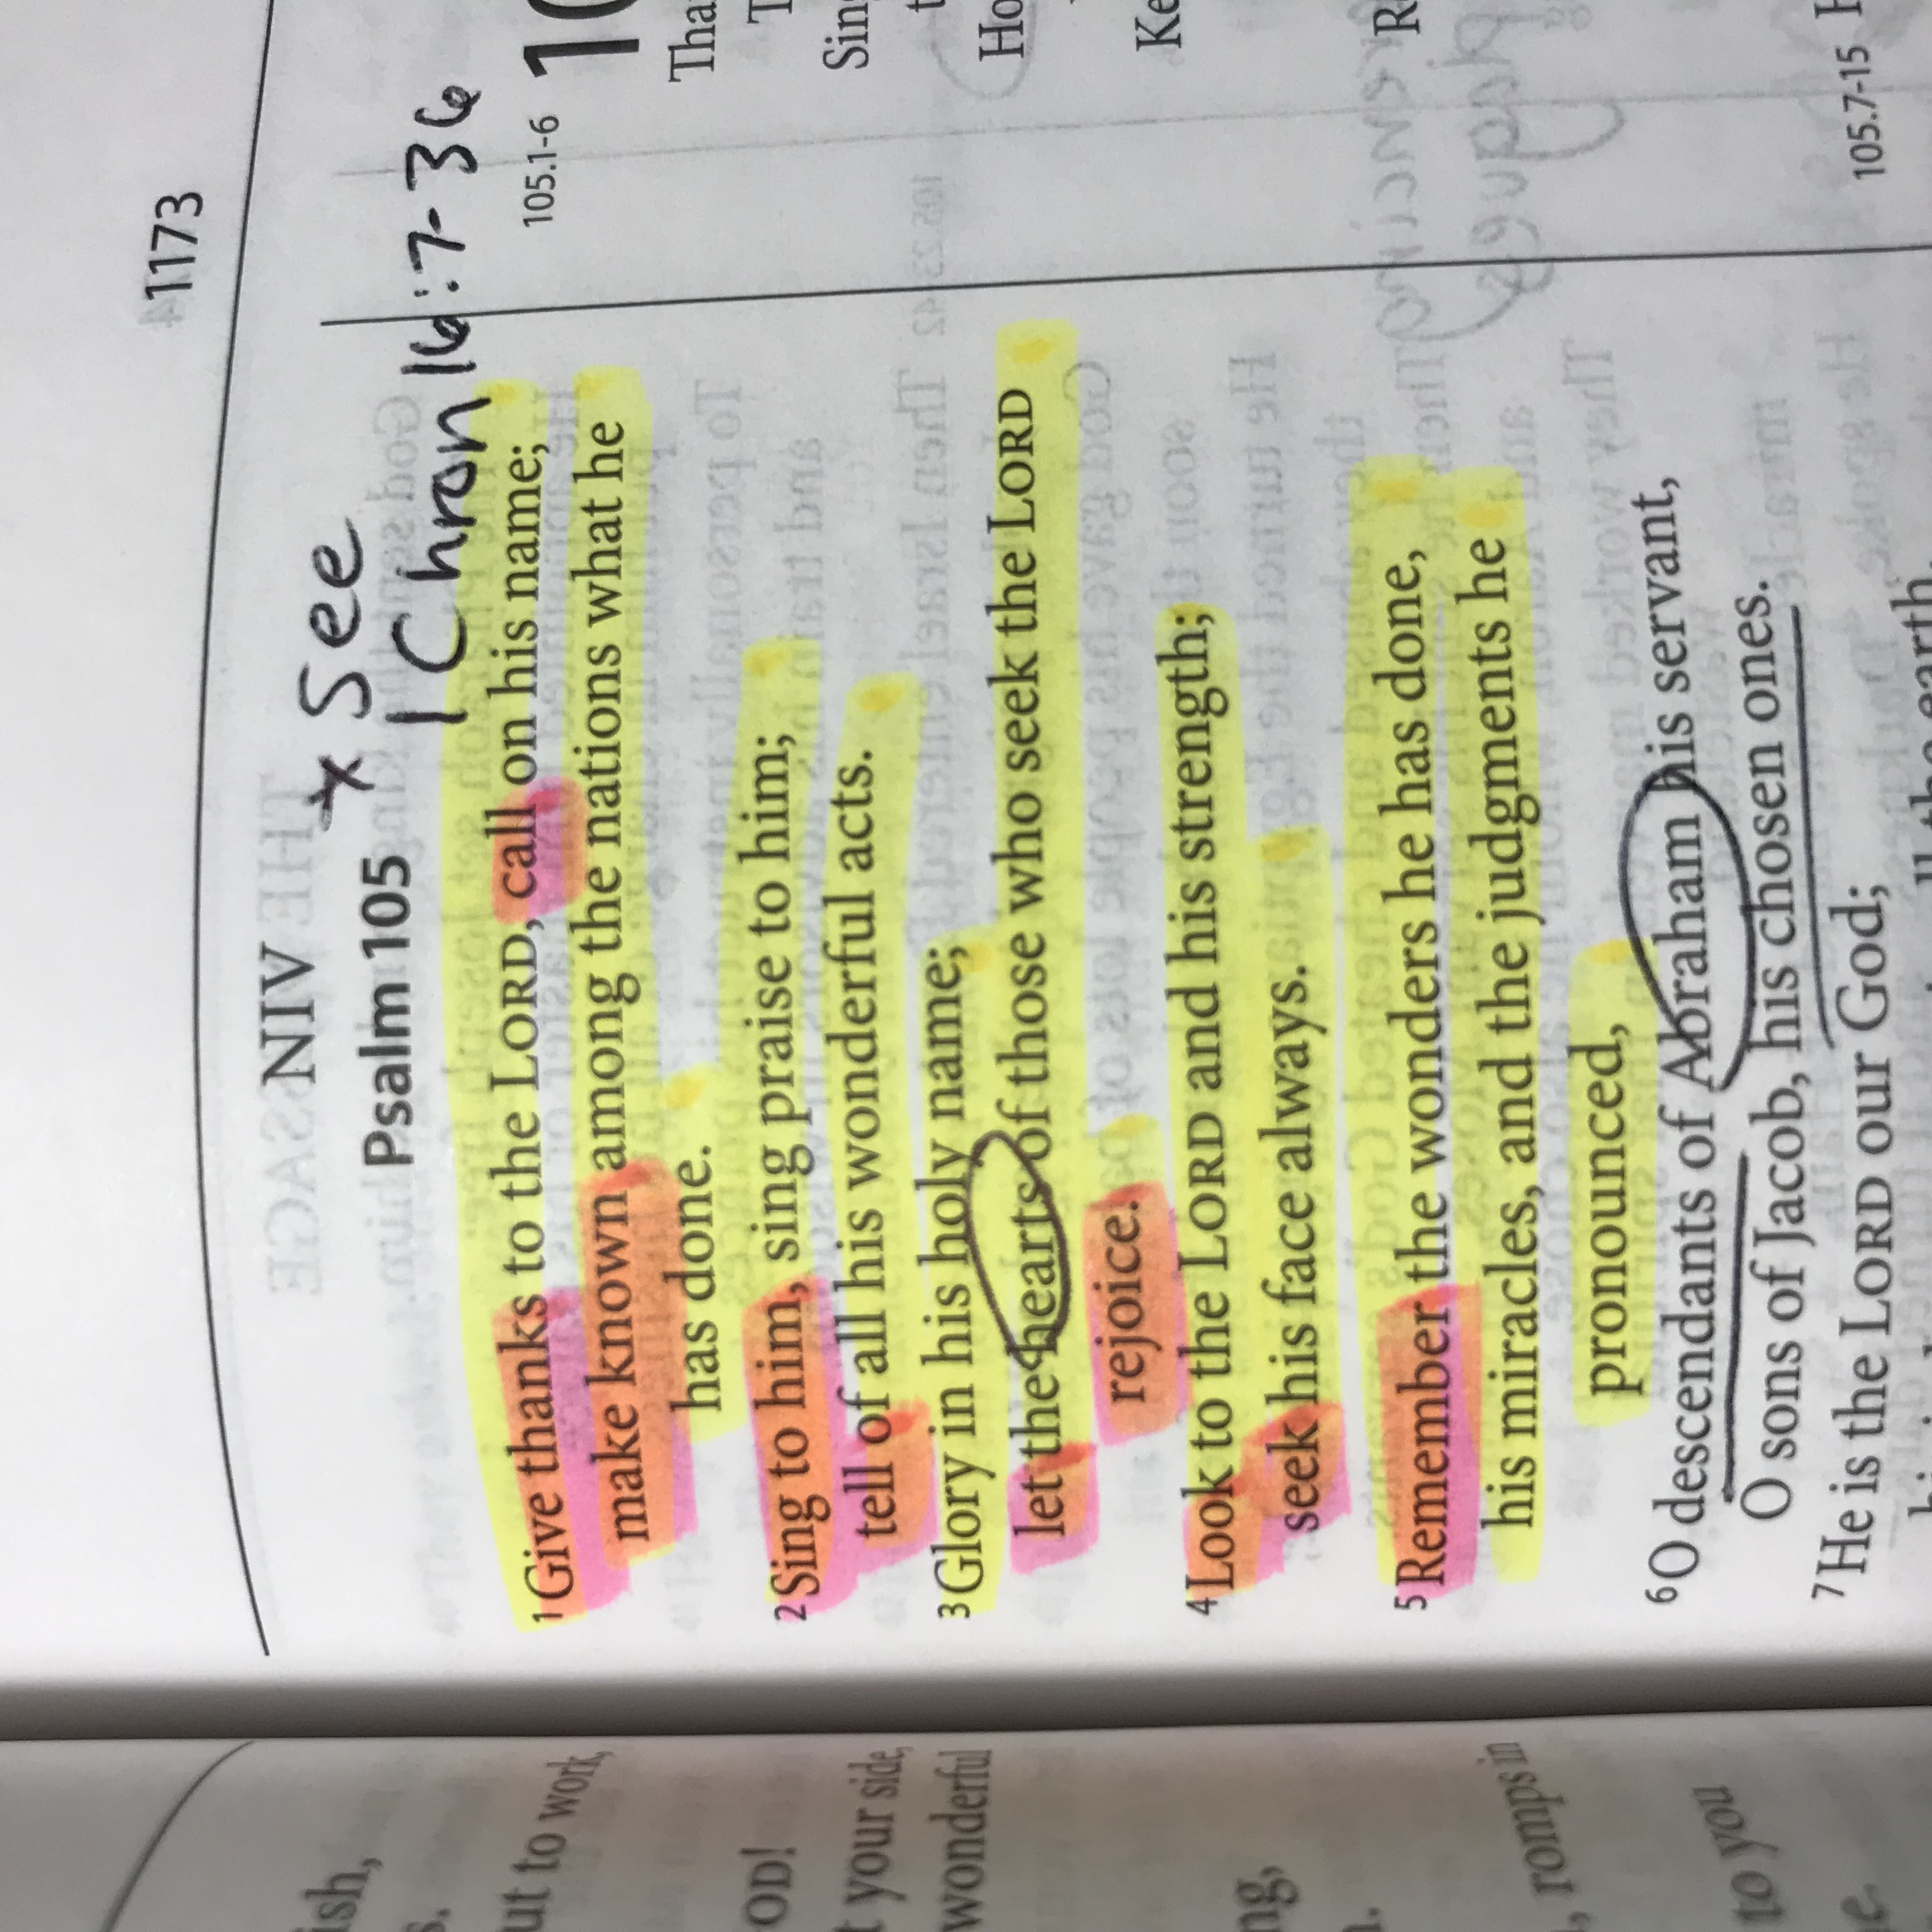 1173
NIV
* See
1 Chron 16:7-36
Psalm 105
1 Give thanks to the LORD, call on his name;
make known among the nations what he
has done.
2 Sing to him, sing praise to him;
tell of all his wonderful acts.
3 Glory in his holy name;
let the hearts of those who seek the LORD
rejoice.
4 Look to the LORD and his strength;
seek his face always.
5 Remember the wonders he has done,
his miracles, and the judgments he
pronounced,
6 O descendants of Abraham his servant,
O sons of Jacob, his chosen ones.
7 He is the LORD our God;
105.1-6
105.7-15
to work,
your side,
wonderful
romps in
to you